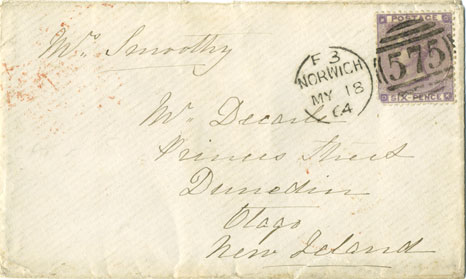 Mr. Smoothy
POSTAGE
575
SIX PENCE
F 3
NORWICH
MY 18
64
Mr. Decarle
Princes Street
Dunedin
Otago
New Zealand